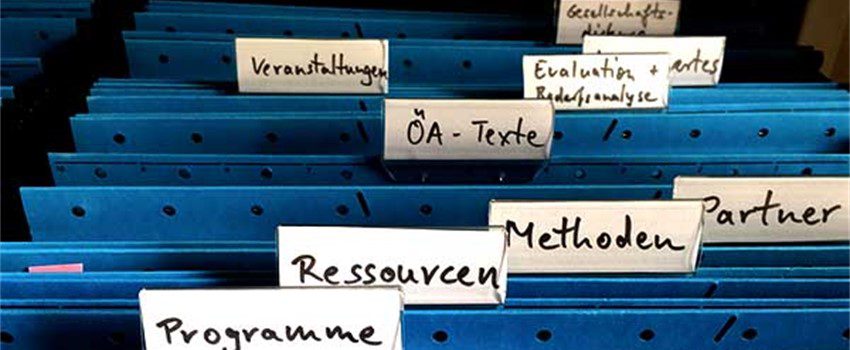 Gesellschafts-
Veranstaltungen
Evaluation +
Bedarfsanalyse
ÖA - Texte
Partner
Methoden
Ressourcen
Programme